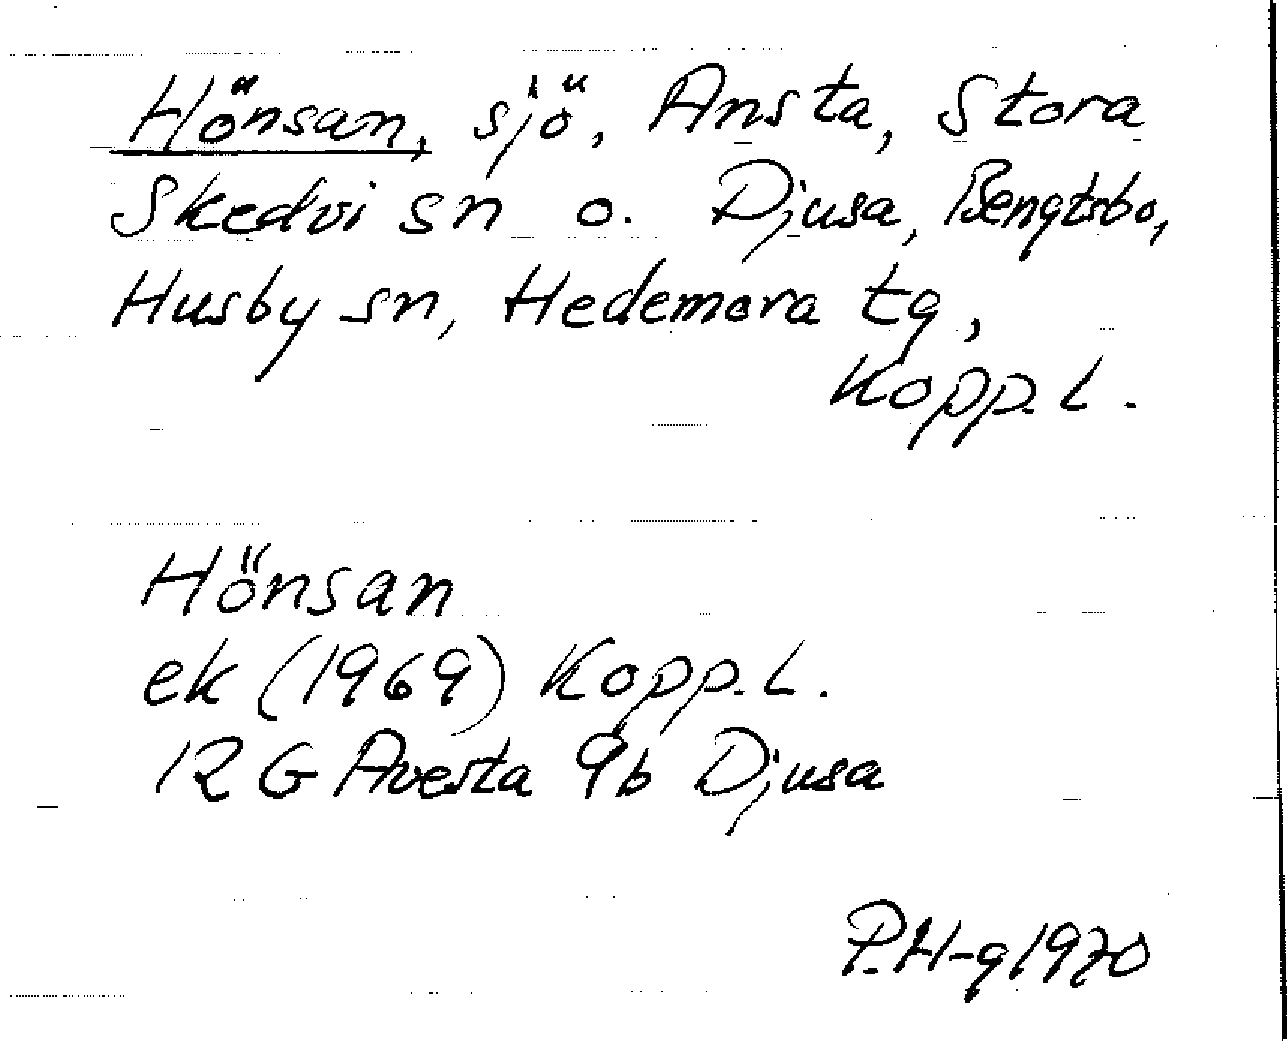 Hönsan, sjö, Ansta, Stora
Skedvi sn o. Djusa, Bengtsbo,
Husby sn, Hedemora tg,
Kopp. L.
Hönsan
ek (1969) Kopp. L.
12 G Avesta 9b Djusa
P.H-g 1970